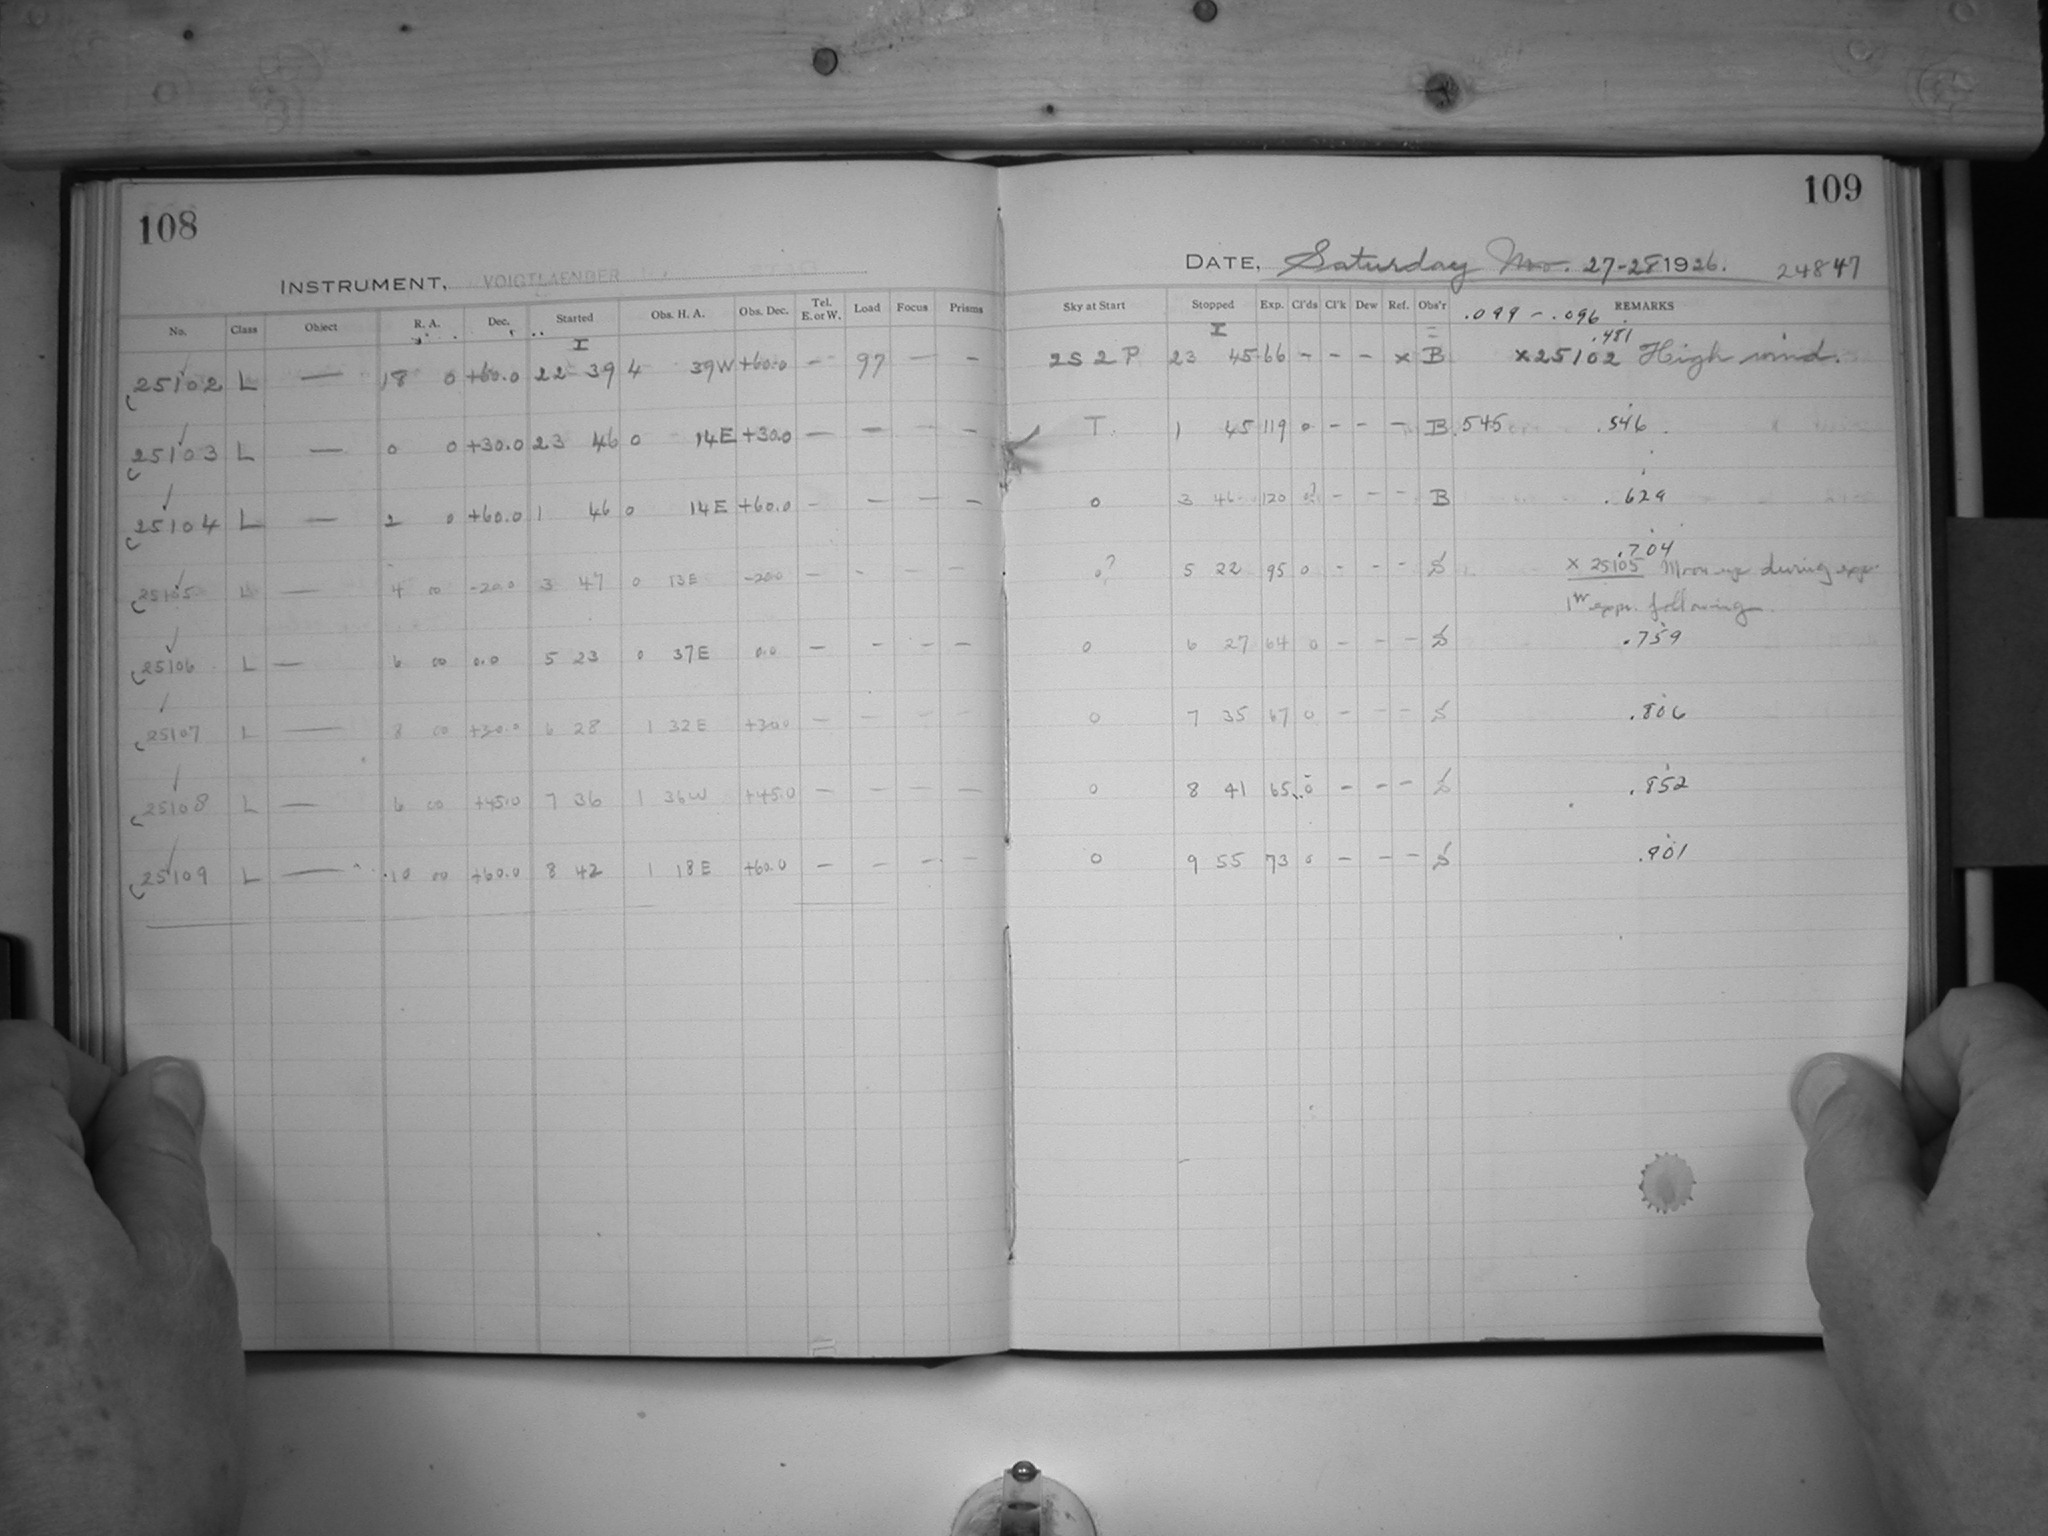 108
INSTRUMENT, VOIGTLAENDER
No. Class Object R. A. Dec. Started Obs. H. A. Obs. Dec. Tel. E. or W. Load Focus Prisms
I
25102 L — 18 0 +60.0 22 39 4 39W +60.0 — 97 — —
25103 L — 0 0 +30.0 23 46 0 14E +30.0 — — — —
25104 L — 2 0 +60.0 1 46 0 14E +60.0 — — — —
25105 L — 4 00 -20.0 3 47 0 13E -20.0 — - — —
25106 L — 6 00 0.0 5 23 0 37E 0.0 — — — —
25107 L — 8 00 +30.0 6 28 1 32E +30.0 — — — —
25108 L — 6 00 +45.0 7 36 1 36W +45.0 — — — —
25109 L — 10 00 +60.0 8 42 1 18E +60.0 — — — —
109
DATE, Saturday Nov. 27-28 1926. 24847
Sky at Start Stopped Exp. Cl'ds Cl'k Dew Ref. Obs'r REMARKS
.099 - .096
I
.481
2S 2P 23 45 66 - - - x B x25102 High wind.
T. 1 45 119 0 - - - B .545 .546
0 3 46 120 0? - - - B .629
.704
0? 5 22 95 0 - - - S x 25105 Moon up during expr
expr. following
0 6 27 64 0 - - - S .759
0 7 35 67 0 - - - S .806
0 8 41 65 0 - - - S .852
0 9 55 73 0 - - - S .901